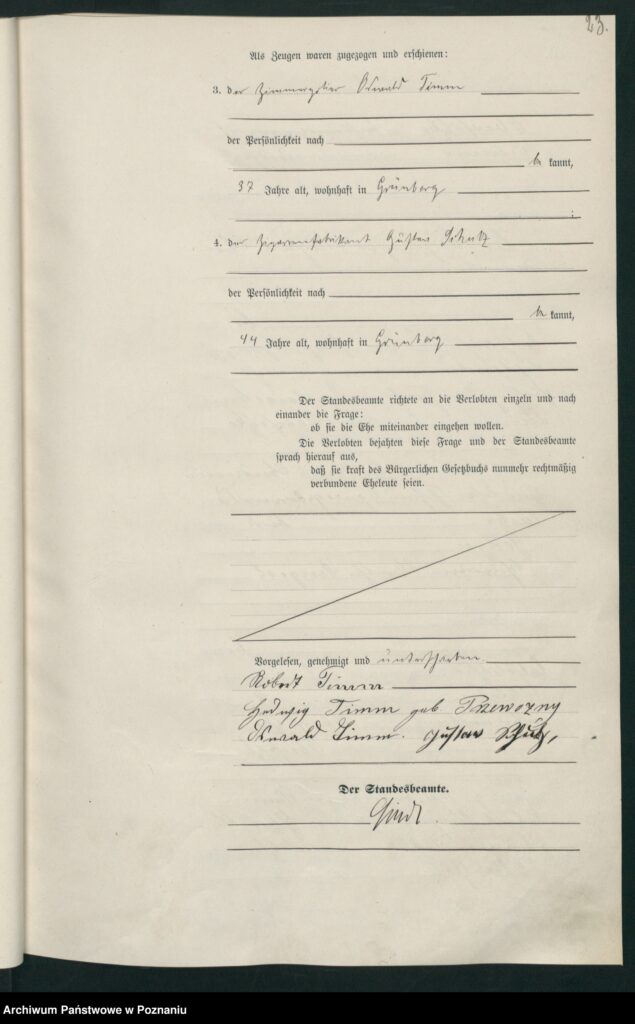 23.
Als Zeugen waren zugezogen und erschienen:
3. der Zimmerpolier Oswald Timm
der Persönlichkeit nach
be kannt,
37 Jahre alt, wohnhaft in Grünberg
4. der Zigarrenfabrikant Gustav Schulz
der Persönlichkeit nach
be kannt,
44 Jahre alt, wohnhaft in Grünberg
Der Standesbeamte richtete an die Verlobten einzeln und nach
einander die Frage:
ob sie die Ehe miteinander eingehen wollen.
Die Verlobten bejahten diese Frage und der Standesbeamte
sprach hierauf aus,
daß sie kraft des Bürgerlichen Gesetzbuchs nunmehr rechtmäßig
verbundene Eheleute seien.
Vorgelesen, genehmigt und unterschrieben
Robert Timm
Hedwig Timm geb Przewozny
Oswald Timm. Gustav Schulz,
Der Standesbeamte.
Archiwum Państwowe w Poznaniu